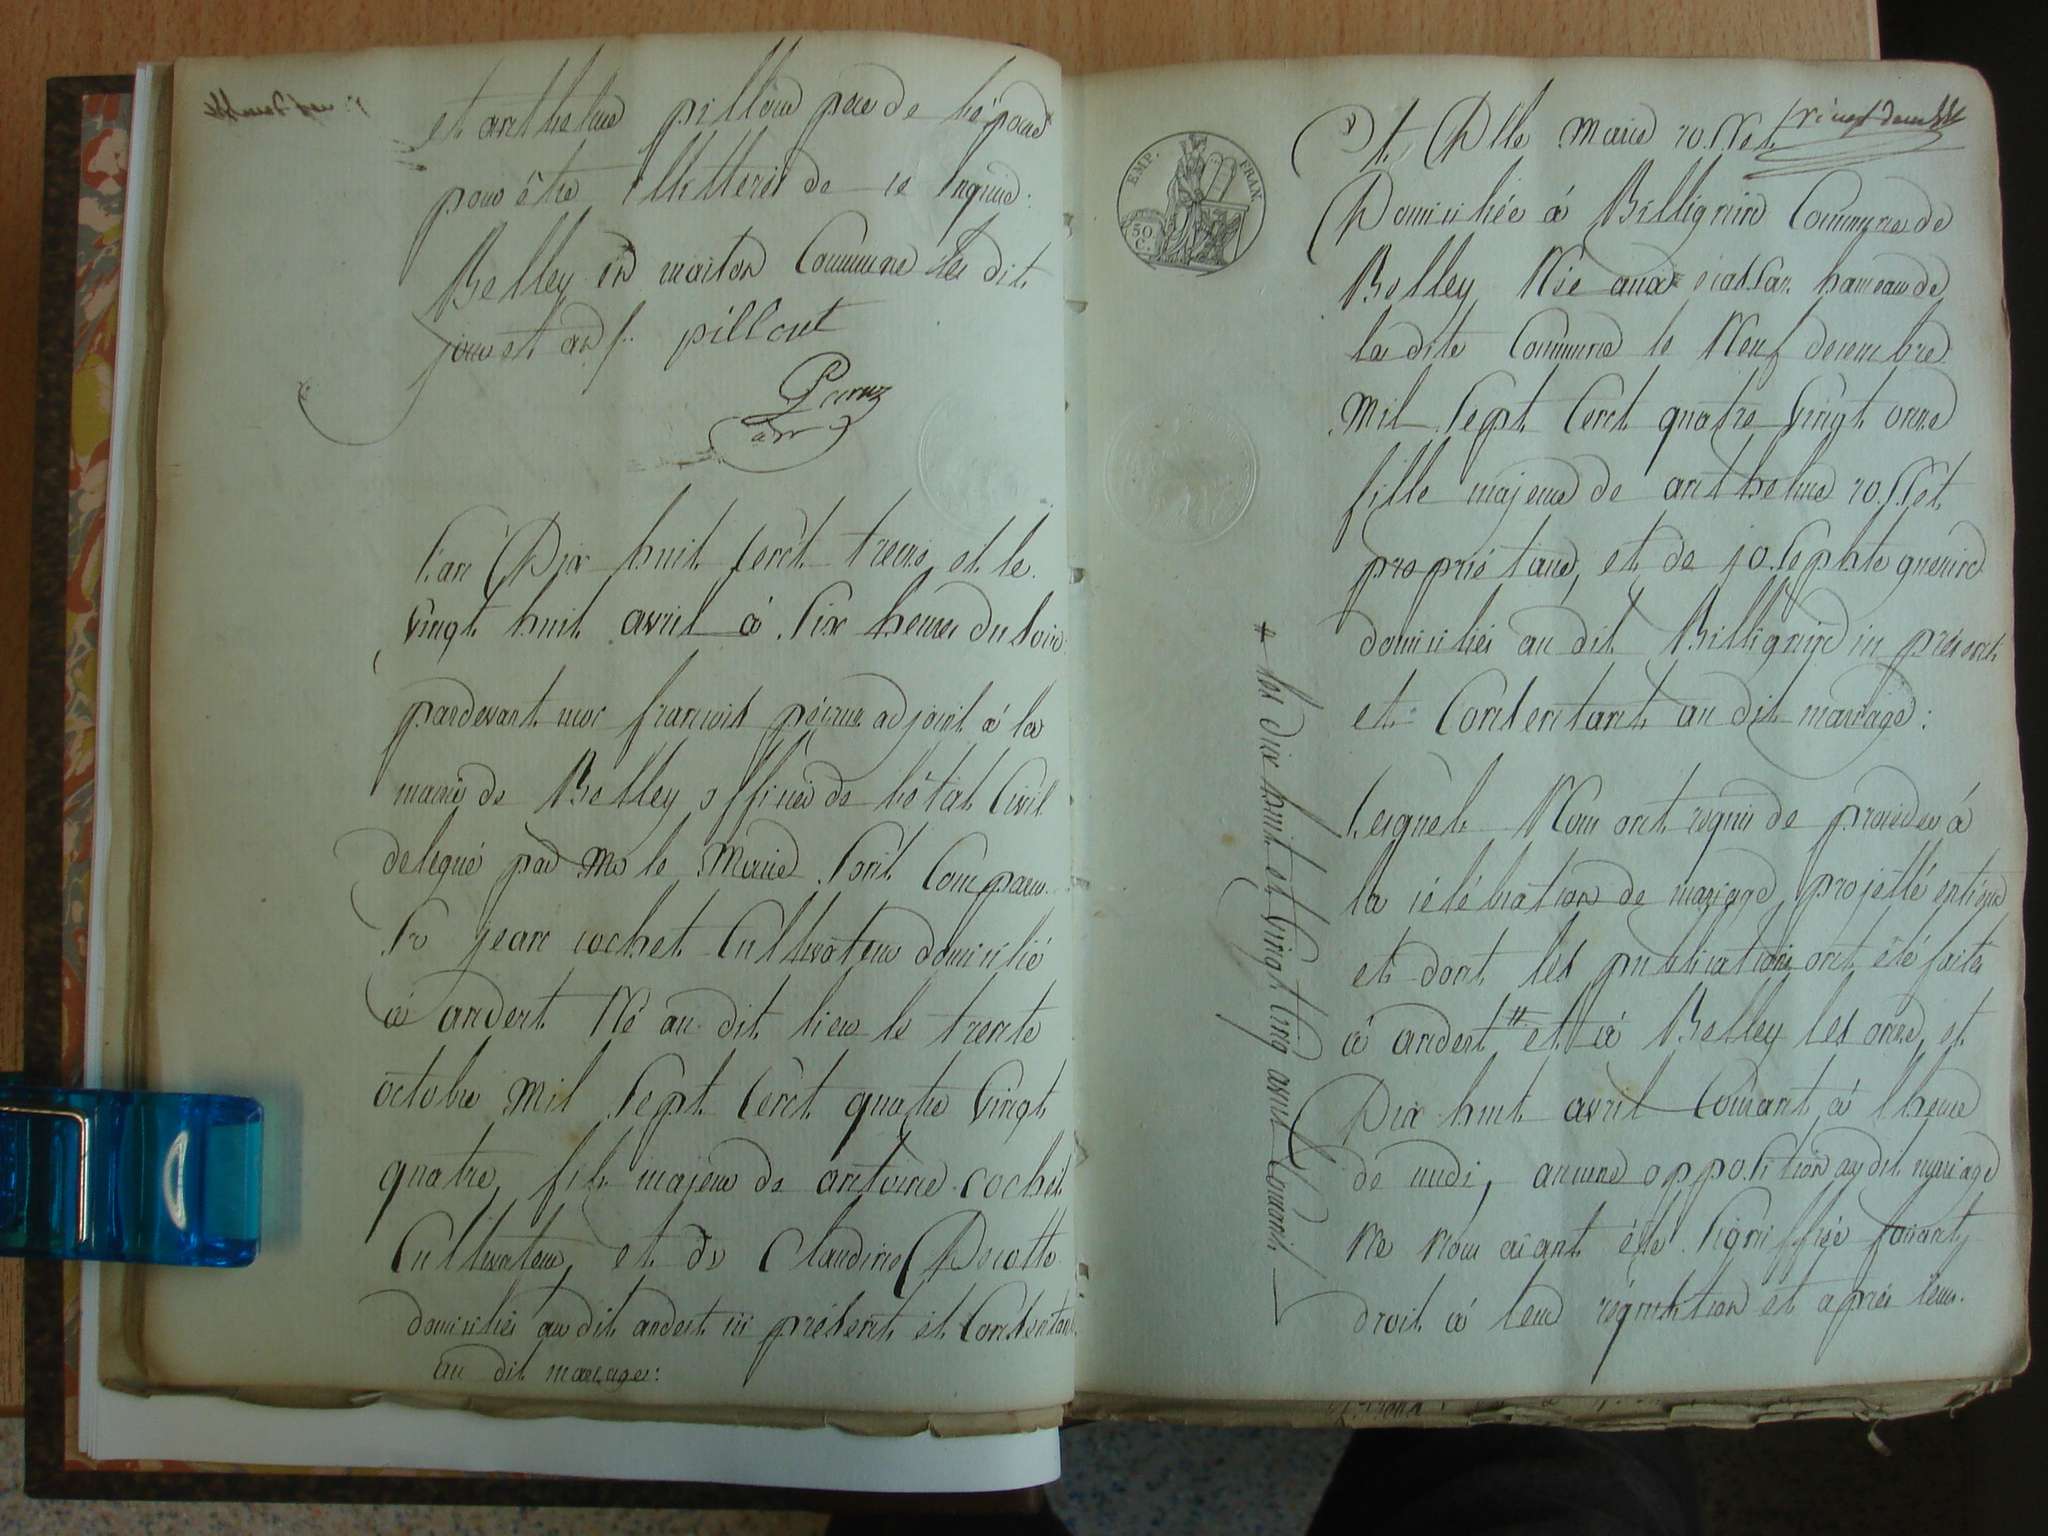 et anthelme pilloud père de l'épouse
pour être illettrés de ce enquis:
Belley en maison Commune les dit
jour et an f. pillout
adj
L'an Dix huit Cent treize et le
vingt huit avril à Six heures du Soir
pardevant moi françois adjoint à la
mairie de Belley officier de l'état Civil
délégué par Mr le Maire Sont Comparus
Sr jean cochet Cultivateur domicilié
à andert Né au dit lieu le trente
octobre mil Sept Cent quatre vingt
quatre, fils majeur de antoine cochet
Cultivateur, et de Claudine
domiciliés au dit andert ici présent et Consentant
au dit mariage:
EMP. FRAN.
50 C.
Et Dlle Marie rosset
Domiciliée à Billignin Commune de
Belley Née aux hameau de
la dite Commune le Neuf decembre
Mil Sept Cent quatre vingt onze
fille majeure de anthelme rosset
propriétaire, et de josephte
domiciliés au dit Billignin ici présents
et Consentant au dit mariage:
Lesquels Nous ont requis de procéder à
la célébration de mariage projetté entr'eux
et dont les publications ont été faites
à andert # et à Belley les onze, et
Dix huit avril Courant, à l'heure
de midi, aucune opposition au dit mariage
Ne Nous aiant été Signiffiée faisant
droit à leur réquisition et après leur
# les dix huit et vingt cinq avril Courant